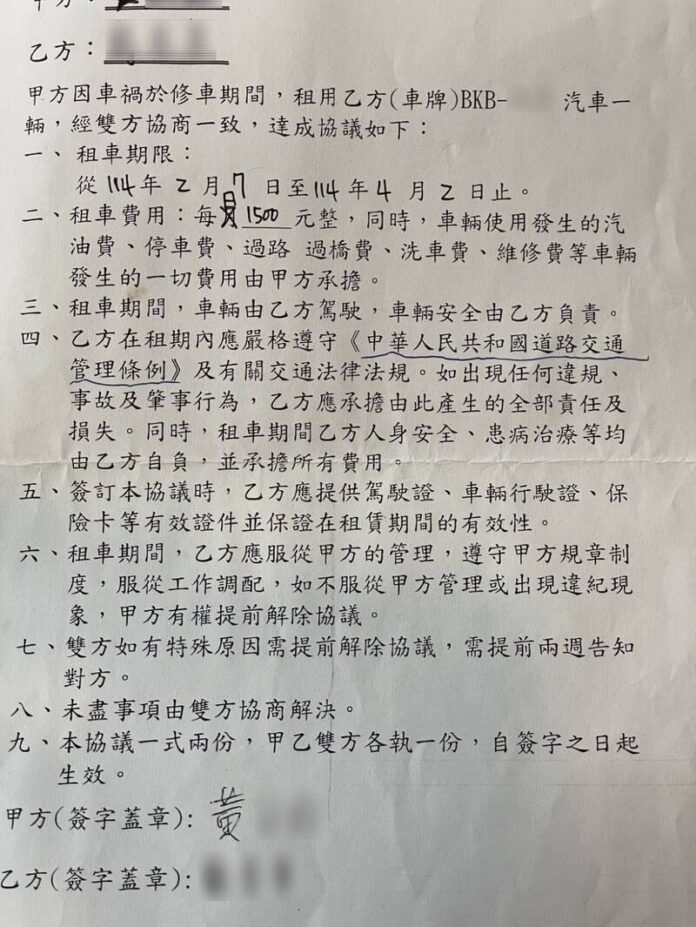 甲方：
乙方：
甲方因車禍於修車期間，租用乙方(車牌)BKB- 汽車一
輛，經雙方協商一致，達成協議如下：
一、 租車期限：
從 114 年 2 月 7 日至 114 年 4 月 2 日止。
二、租車費用：每日 1500 元整，同時，車輛使用發生的汽
油費、停車費、過路 過橋費、洗車費、維修費等車輛
發生的一切費用由甲方承擔。
三、租車期間，車輛由乙方駕駛，車輛安全由乙方負責。
四、乙方在租期內應嚴格遵守《中華人民共和國道路交通
管理條例》及有關交通法律法規。如出現任何違規、
事故及肇事行為，乙方應承擔由此產生的全部責任及
損失。同時，租車期間乙方人身安全、患病治療等均
由乙方自負，並承擔所有費用。
五、簽訂本協議時，乙方應提供駕駛證、車輛行駛證、保
險卡等有效證件並保證在租賃期間的有效性。
六、租車期間，乙方應服從甲方的管理，遵守甲方規章制
度，服從工作調配，如不服從甲方管理或出現違紀現
象，甲方有權提前解除協議。
七、雙方如有特殊原因需提前解除協議，需提前兩週告知
對方。
八、未盡事項由雙方協商解決。
九、本協議一式兩份，甲乙雙方各執一份，自簽字之日起
生效。
甲方(簽字蓋章): 黃
乙方(簽字蓋章):